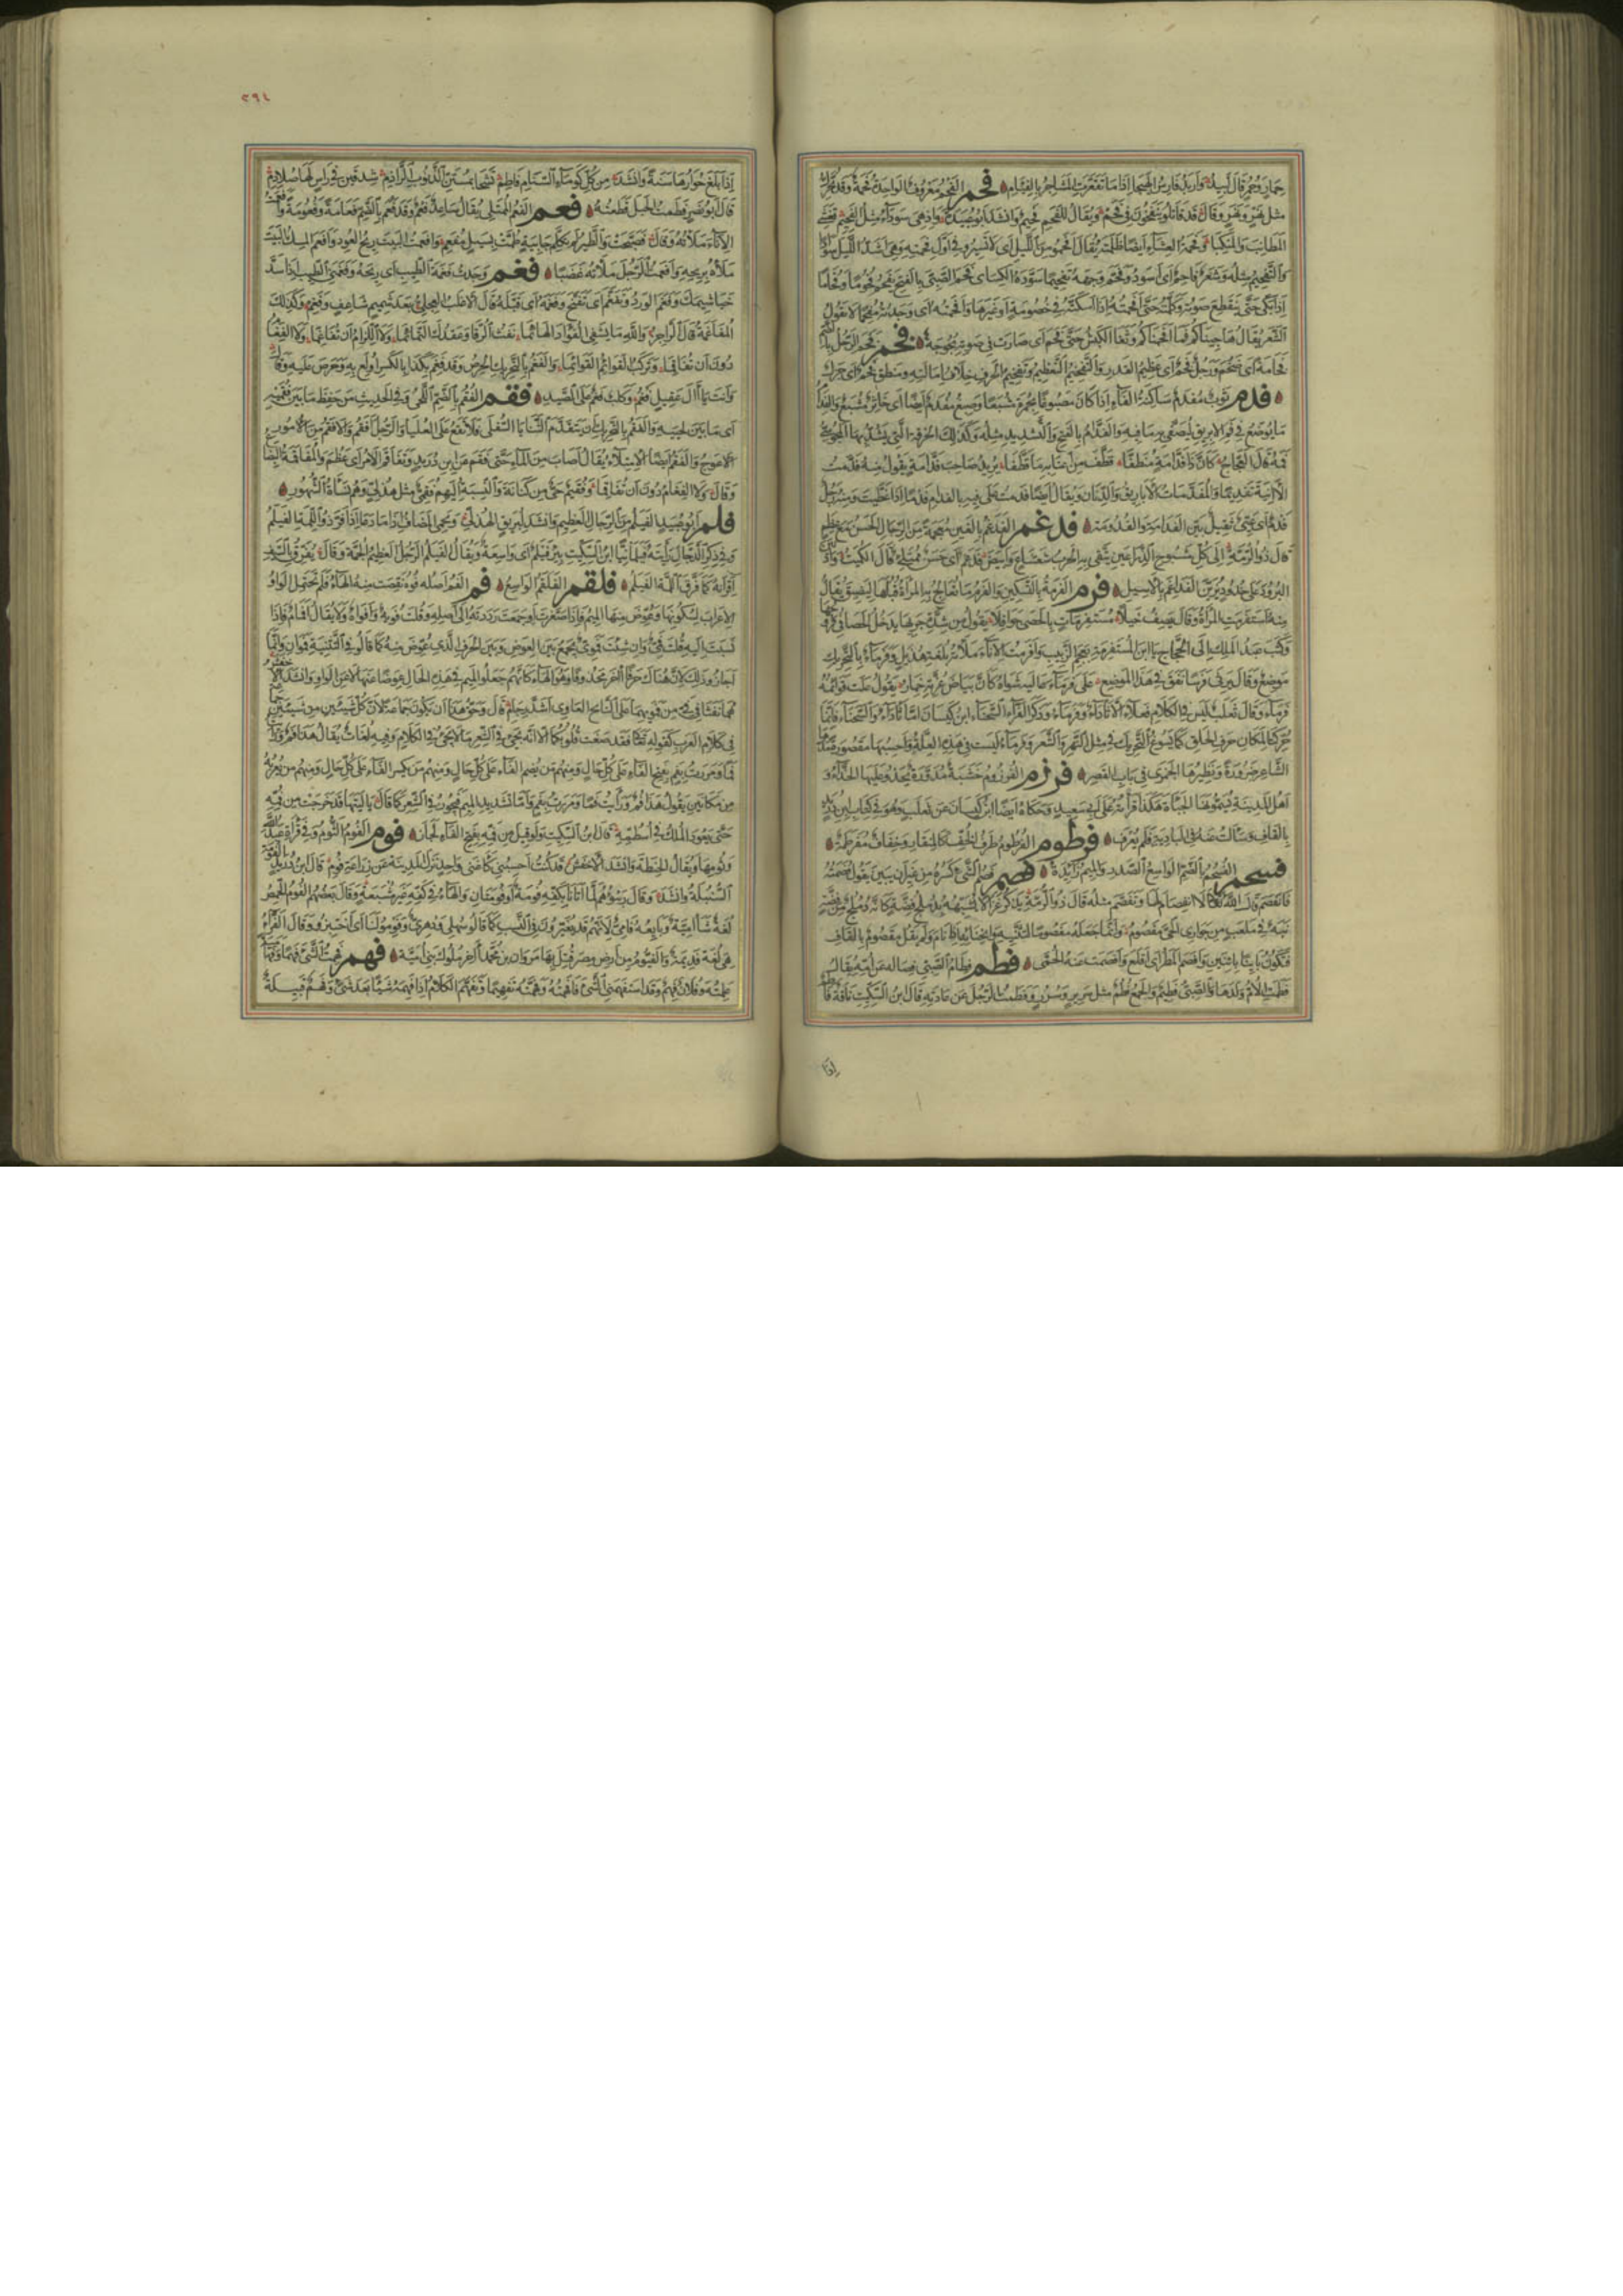 قال لبيد وأربد فارس الهيجا إذا ما تقعرت المشاجر بالفئام فحم الفحم معروف الواحدة فحمة وقد يحرك
مثل نهر ونهر وقال قد قاتلوا لو ينفخون في فحم ويقال للفحم فحيم وأنشد أبو عبيد وإذ هي سوداء مثل الفحيم تغشى
المطانب والمنكبا وفحمة العشاء أيضا ظلمته يقال أفحموا من الليل أي لا تسيروا في أول فحمته وهي أشد الليل سوادا
والتفحيم مثله وشعر فاحم أي أسود وفحم وجهه تفحيما سوده الكسائي فحم الصبي بالفتح يفحم فحوما وفحاما
إذا بكى حتى ينقطع صوته وكلمته حتى أفحمته إذا أسكته في خصومة أو غيرها وأفحمته أي وجدته مفحما لا يقول
الشعر يقال هاجيناكم فما أفحمناكم وثغا الكبش حتى فحم أي صارت في صوته بحوحة فخم فخم الرجل بالضم
فخامة أي ضخم ورجل فخم أي عظيم القدر والتفخيم التعظيم وتفخيم الحرف خلاف إمالته ومنطق فخم أي جزل
فدم ثوب مفدم ساكنة الفاء إذا كان مصبوغا بحمرة مشبعا وصبغ مفدم أيضا أي خاثر مشبع والفدام
ما يوضع في فم الإبريق ليصفى به ما فيه والفدام بالفتح والتشديد مثله وكذلك الخرقة التي يشد بها المجوسي
فمه قال العجاج كأن ذا فدامة منطفا قطف من أعنابه ما قطفا يريد صاحب فدامة يقول منه فدمت
الآنية تفديما والمفدمات الأباريق والدنان ويقال أيضا فدمت على فيه بالفدام فدما إذا غطيت ورجل
فدم أي عيي ثقيل بين الفدامة والفدومة فدغم الفدغم بالغين معجمة من الرجال الحسن مع عظم
قال ذو الرمة إلى كل مشبوح الذراعين تتقى به الحرب شعشاع وأبيض فدغم أي حسن ممتلئ قال الكميت وأدنين
البرود على خدود يزين الفداغم بالأسيل فرم الفرمة بالتسكين والفرم ما تعالج به المرأة قبلها ليضيق يقال
منه استفرمت المرأة وقال يصف خيلا مستفرمات بالحصى جوافلا يقول من شدة جريها يدخل الحصا في فروجها
وكتب عبد الملك إلى الحجاج يا ابن المستفرمة بعجم الزبيب وأفرمت الإناء ملأته بلغة هذيل وفرماء بالتحريك
موضع وقال يرثي فرسا نفق في هذا الموضع على فرماء عالية شواه كأن بياض غرته خمار يقول علت قوائمه
فرماء وقال ثعلب ليس في الكلام فعلاء إلا ثأداء وفرماء وذكر الفراء السحناء ابن كيسان أما ثأداء والسحناء فإنما
حركتا لمكان حرف الحلق كما يسوغ التحريك في مثل النهر والشعر وفرماء ليست فيه هذه العلة وأحسبها مقصورة مدها
الشاعر ضرورة ونظيرها الجمزى في باب القصر فرزم الفرزوم خشبة مدورة يحذو عليها الحذاء و
أهل المدينة يسمونها الجبأة هكذا قرأته على أبي سعيد وحكاه أيضا ابن كيسان عن ثعلب وهو في كتاب ابن دريد
بالقاف وسألت عنه في البادية فلم يعرف فرطوم الفرطوم طرف الخف كالمنقار وخفاف مفرطمة
فسحم الفسحم بالضم الواسع الصدر والميم زائدة فصم فصم الشيء كسره من غير أن يبين يقول فصمته
فانفصم قال الله تعالى لا انفصام لها وتفصم مثله قال ذو الرمة يذكر غزالا شبهه بدملج فضة كأنه دملج من فضة
نبه في ملعب من جواري الحي مفصوم وإنما جعله مفصوما لتثنيه وانحنائه إذا نام ولم يقل مقصوم بالقاف
فيكون بائنا باثنين وأفصم المطر أي أقلع وأفصمت عنه الحمى فطم فطام الصبي فصاله عن أمه يقال
فطمت الأم ولدها والصبي فطيم والجمع فطم مثل سرير وسرر وفطمت الرجل عن عادته قال ابن السكيت ناقة فاطم
إذا
٢٩٤
إذا بلغ حوارها سنة وأنشد من كل كوماء السنام فاطم تشحا بمستن الذنوب الراذم شدقين في رأس لها صلادم
قال أبو نصر فطمت الحبل قطعته فعم الفعم الممتلئ يقال ساعد فعم وقد فعم بالضم فعامة وفعومة وأفعمت
الإناء ملأته وقال فصبحت والطير لم تكلم جابية طمت بسيل مفعم وأفعمت البيت بريح العود وأفعم المسك البيت
ملأه بريحه وأفعمت الرجل ملأته غضبا فغم وجدت فغمة الطيب أي ريحه وفغمني الطيب إذا سد
خياشيمك وفغم الورد وتفغم أي تفتح وفغمه أي قبله قال الأغلب العجلي بعد شميم شاغف وفغم وكذلك
المفاغمة قال الراجز والله ما يشفي الفؤاد الهائما نفث الرقا وعقدك التمائما ولا اللزام أن تفاغما ولا الفغام
دون أن تفاقما وتركب القوائم القوائما والفغم بالتحريك الحرص وقد فغم بكذا بالكسر أولع به وحرص عليه وقال
وأنت يا آل عقيل فغم وكلب فغم على الصيد فقم الفقم بالضم اللحي وفي الحديث من حفظ ما بين فقميه
أي ما بين لحييه والفقم بالتحريك أن يتقدم الثنايا السفلى فلا تقع على العليا والرجل أفقم والأفقم من الأمور
الأعوج والفقم أيضا الامتلاء يقال أصاب من الماء حتى فقم عن ابن دريد وتفاقم الأمر أي عظم والمفاقمة البضاع
وقال ولا الفغام دون أن تفاقما وفقيم حي من كنانة والنسبة إليهم فقمي مثل هذلي وهم نسأة الشهور
فلم أبو عبيد الفيلم من الرجال العظيم وأنشد لبريق الهذلي ويحمي المضاف إذا ما دعا إذا فر ذو اللمة الفيلم
وفي ذكر الدجال رأيته فيلمانيا ابن السكيت بئر فيلم أي واسعة ويقال الفيلم الرجل العظيم الجمة وقال يفرق بالسيف
أقرانه كما فرق اللمة الفيلم فلقم الفلقم الواسع فم الفم أصله فوه نقصت منه الهاء فلم تحتمل الواو
الإعراب لسكونها فعوض منها الميم فإذا صغرت أو جمعت رددته إلى أصله وقلت فويه وأفواه ولا يقال أفمام فإذا
نسبت إليه قلت فمي وإن شئت فموي يجمع بين العوض وبين الحرف الذي عوض منه كما قالوا في التثنية فموان وإنما
أجازوا ذلك لأن هناك حرفا آخر محذوفا وهو الهاء كأنهم جعلوا الميم في هذه الحال عوضا عنها لا عن الواو وأنشد الأخفش
هما نفثا في في من فمويهما على النابح العاوي أشد رجام قال وحق هذا أن يكون جماعة لأن كل شيئين من شيئين جماعة
في كلام العرب كقوله تعالى فقد صغت قلوبكما إلا أنه يجيء في الشعر ما لا يجيء في الكلام وفيه لغات يقال هذا فم ورأيت
فما ومررت بفم بفتح الفاء على كل حال ومنهم من يضم الفاء على كل حال ومنهم من يكسر الفاء على كل حال ومنهم من يعربه
من مكانين يقول هذا فم ورأيت فما ومررت بفم وأما تشديد الميم فيجوز في الشعر كما قال يا ليتها قد خرجت من فمه
حتى يعود الملك في أسطمه قال ابن السكيت ولو قيل من فمه بفتح الفاء لجاز فوم الفوم الثوم وفي قراءة عبد الله
وثومها ويقال الحنطة وأنشد الأخفش قد كنت أحسبني كأغنى واحد نزل المدينة عن زراعة فوم قال ابن دريد الفومة
السنبلة وأنشد وقال ربيئهم لما أتانا بكفه فومة أو فومتان والهاء في كفه غير مشبعة وقال بعضهم الفوم الحمص
لغة شآمية وبائعه فامي لأنهم قد يغيرون في النسب كما قالوا سهلي ودهري وفوموا لنا أي اختبزوا وقال الفراء
هي لغة قديمة والفيوم من أرض مصر قتل بها مروان بن محمد آخر ملوك بني أمية فهم فهمت الشيء فهما وفهامية
علمته وفلان فهم وقد استفهمني الشيء فأفهمته وفهمته تفهيما وتفهم الكلام إذا فهمه شيئا بعد شيء وفهم قبيلة